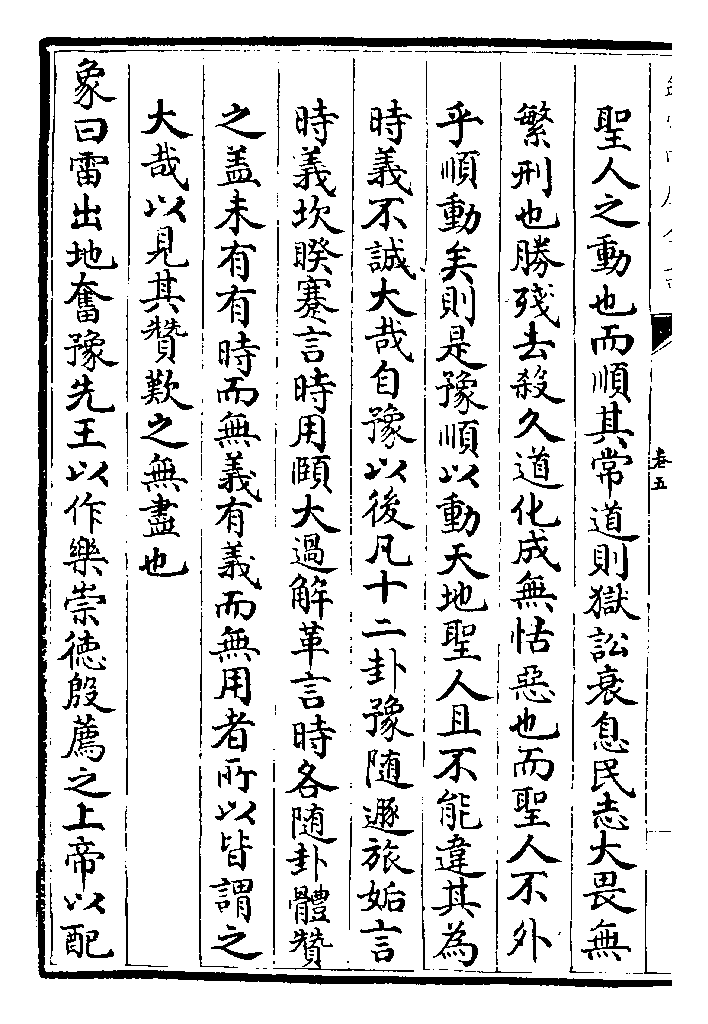 卷五
聖人之動也而順其常道則獄訟衰息民志大畏無
繁刑也勝殘去殺久道化成無怙惡也而聖人不外
乎順動矣則是豫順以動天地聖人且不能違其為
時義不誠大哉自豫以後凡十二卦豫随遯旅姤言
時義坎睽蹇言時用頤大過解革言時各随卦體贊
之盖未有有時而無義有義而無用者所以皆謂之
大哉以見其贊歎之無盡也
象曰雷出地奮豫先王以作樂崇徳殷薦之上帝以配